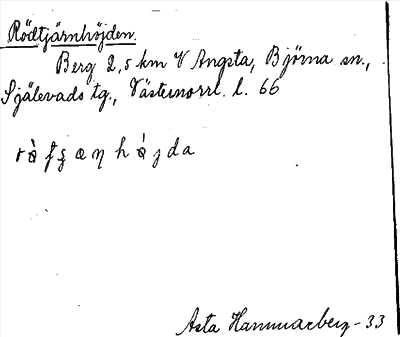 Rödtjärnhöjden.
Berg 2,5 km V Angsta, Björna sn.,
Själevads tg., Västernorrl. l. 66
h
Asta Hammarberg - 33